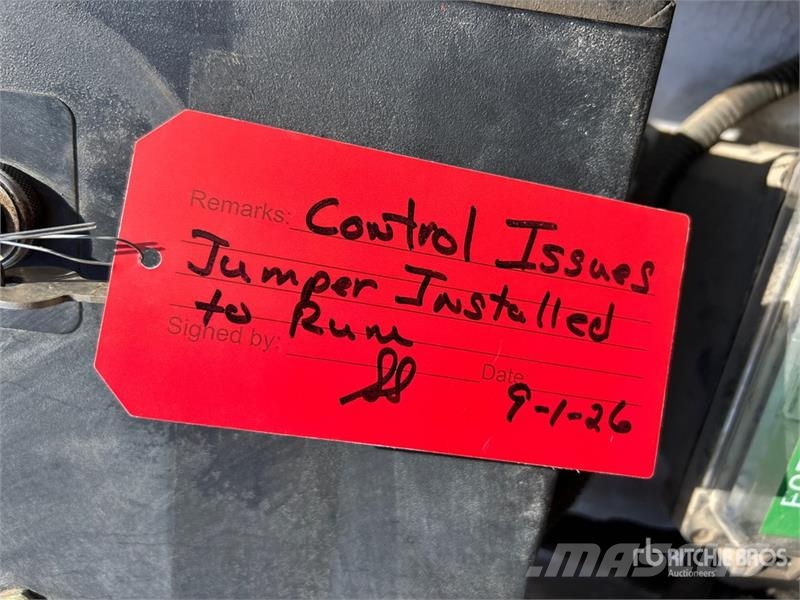 Remarks: Control Issues
Jumper Installed
to Run
Signed by: SS
Date 9-1-26
FO
MAS
rb RITCHIE BROS.
Auctioneers